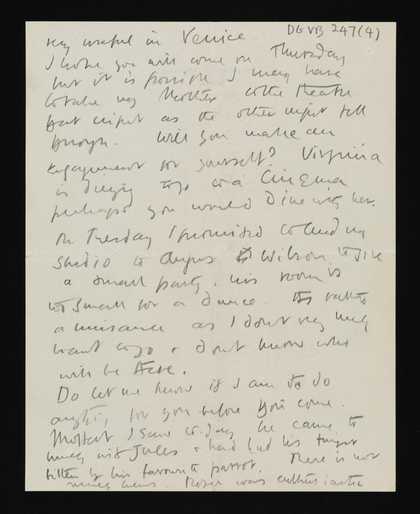 DGVB 247(4)
very useful in Venice
I hope you will come on Thursday
but it is possible I may have
to take my Mother to the Theatre
that night as the other night fell
through. Will you make an
engagement for yourself? Virginia
is dying to go to a Cinema
perhaps you would Dine with her.
On Tuesday I promised to lend my
Studio to Angus Wilson to give
a small party, his room is
too small for a dance. Its rather
a nuisance as I dont very much
want to go & dont know who
will be there.
Do let me know if I am to do
anything for you before you come.
I saw to-day he came to
lunch with Jules & had had his finger
bitten by his favourite parrot. There is not
much news Roger was enthusiastic